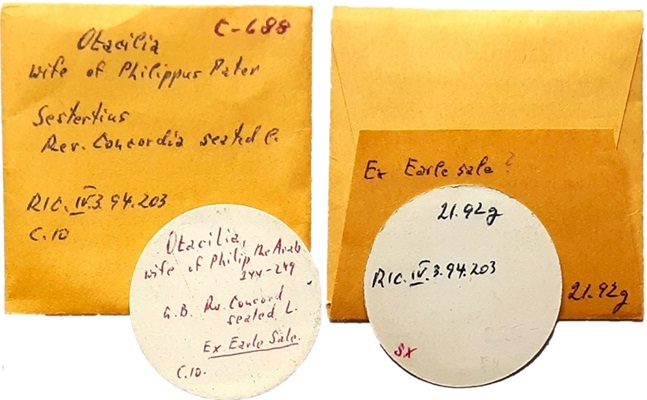 C-688
Otacilia
wife of Philippus Pater
Sestertius
Rev. Concordia seated l.
RIC.IV.3.94.203
C.10
Otacilia,
wife of Philip the Arab
244-249
G.B. Rv. Concord
seated L.
Ex Earle Sale.
C.10.
Ex Earle sale ?
21.92g
21.92g
RIC.IV.3.94.203
SX